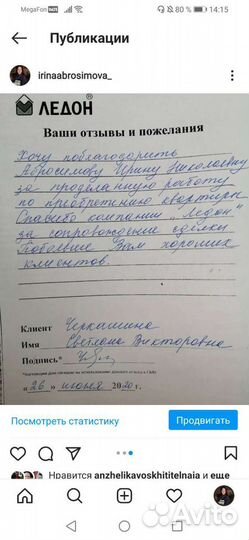 MegaFon
80 %
14:15
Публикации
irinaabrosimova_
ЛЕДОН
Ваши отзывы и пожелания
Хочу поблагодарить
Абросимову Ирину Николаевну
за проделанную работу
по приобретению квартиры
Спасибо компании „Ледон"
за сопровождение сделки
Побольше Вам хороших
клиентов.
Клиент Черкашина
Имя Светлана Викторовна
Подпись*
«26» июня 2020г.
Посмотреть статистику
Продвигать
Нравится anzhelikavoskhititelnaia и еще
Avito